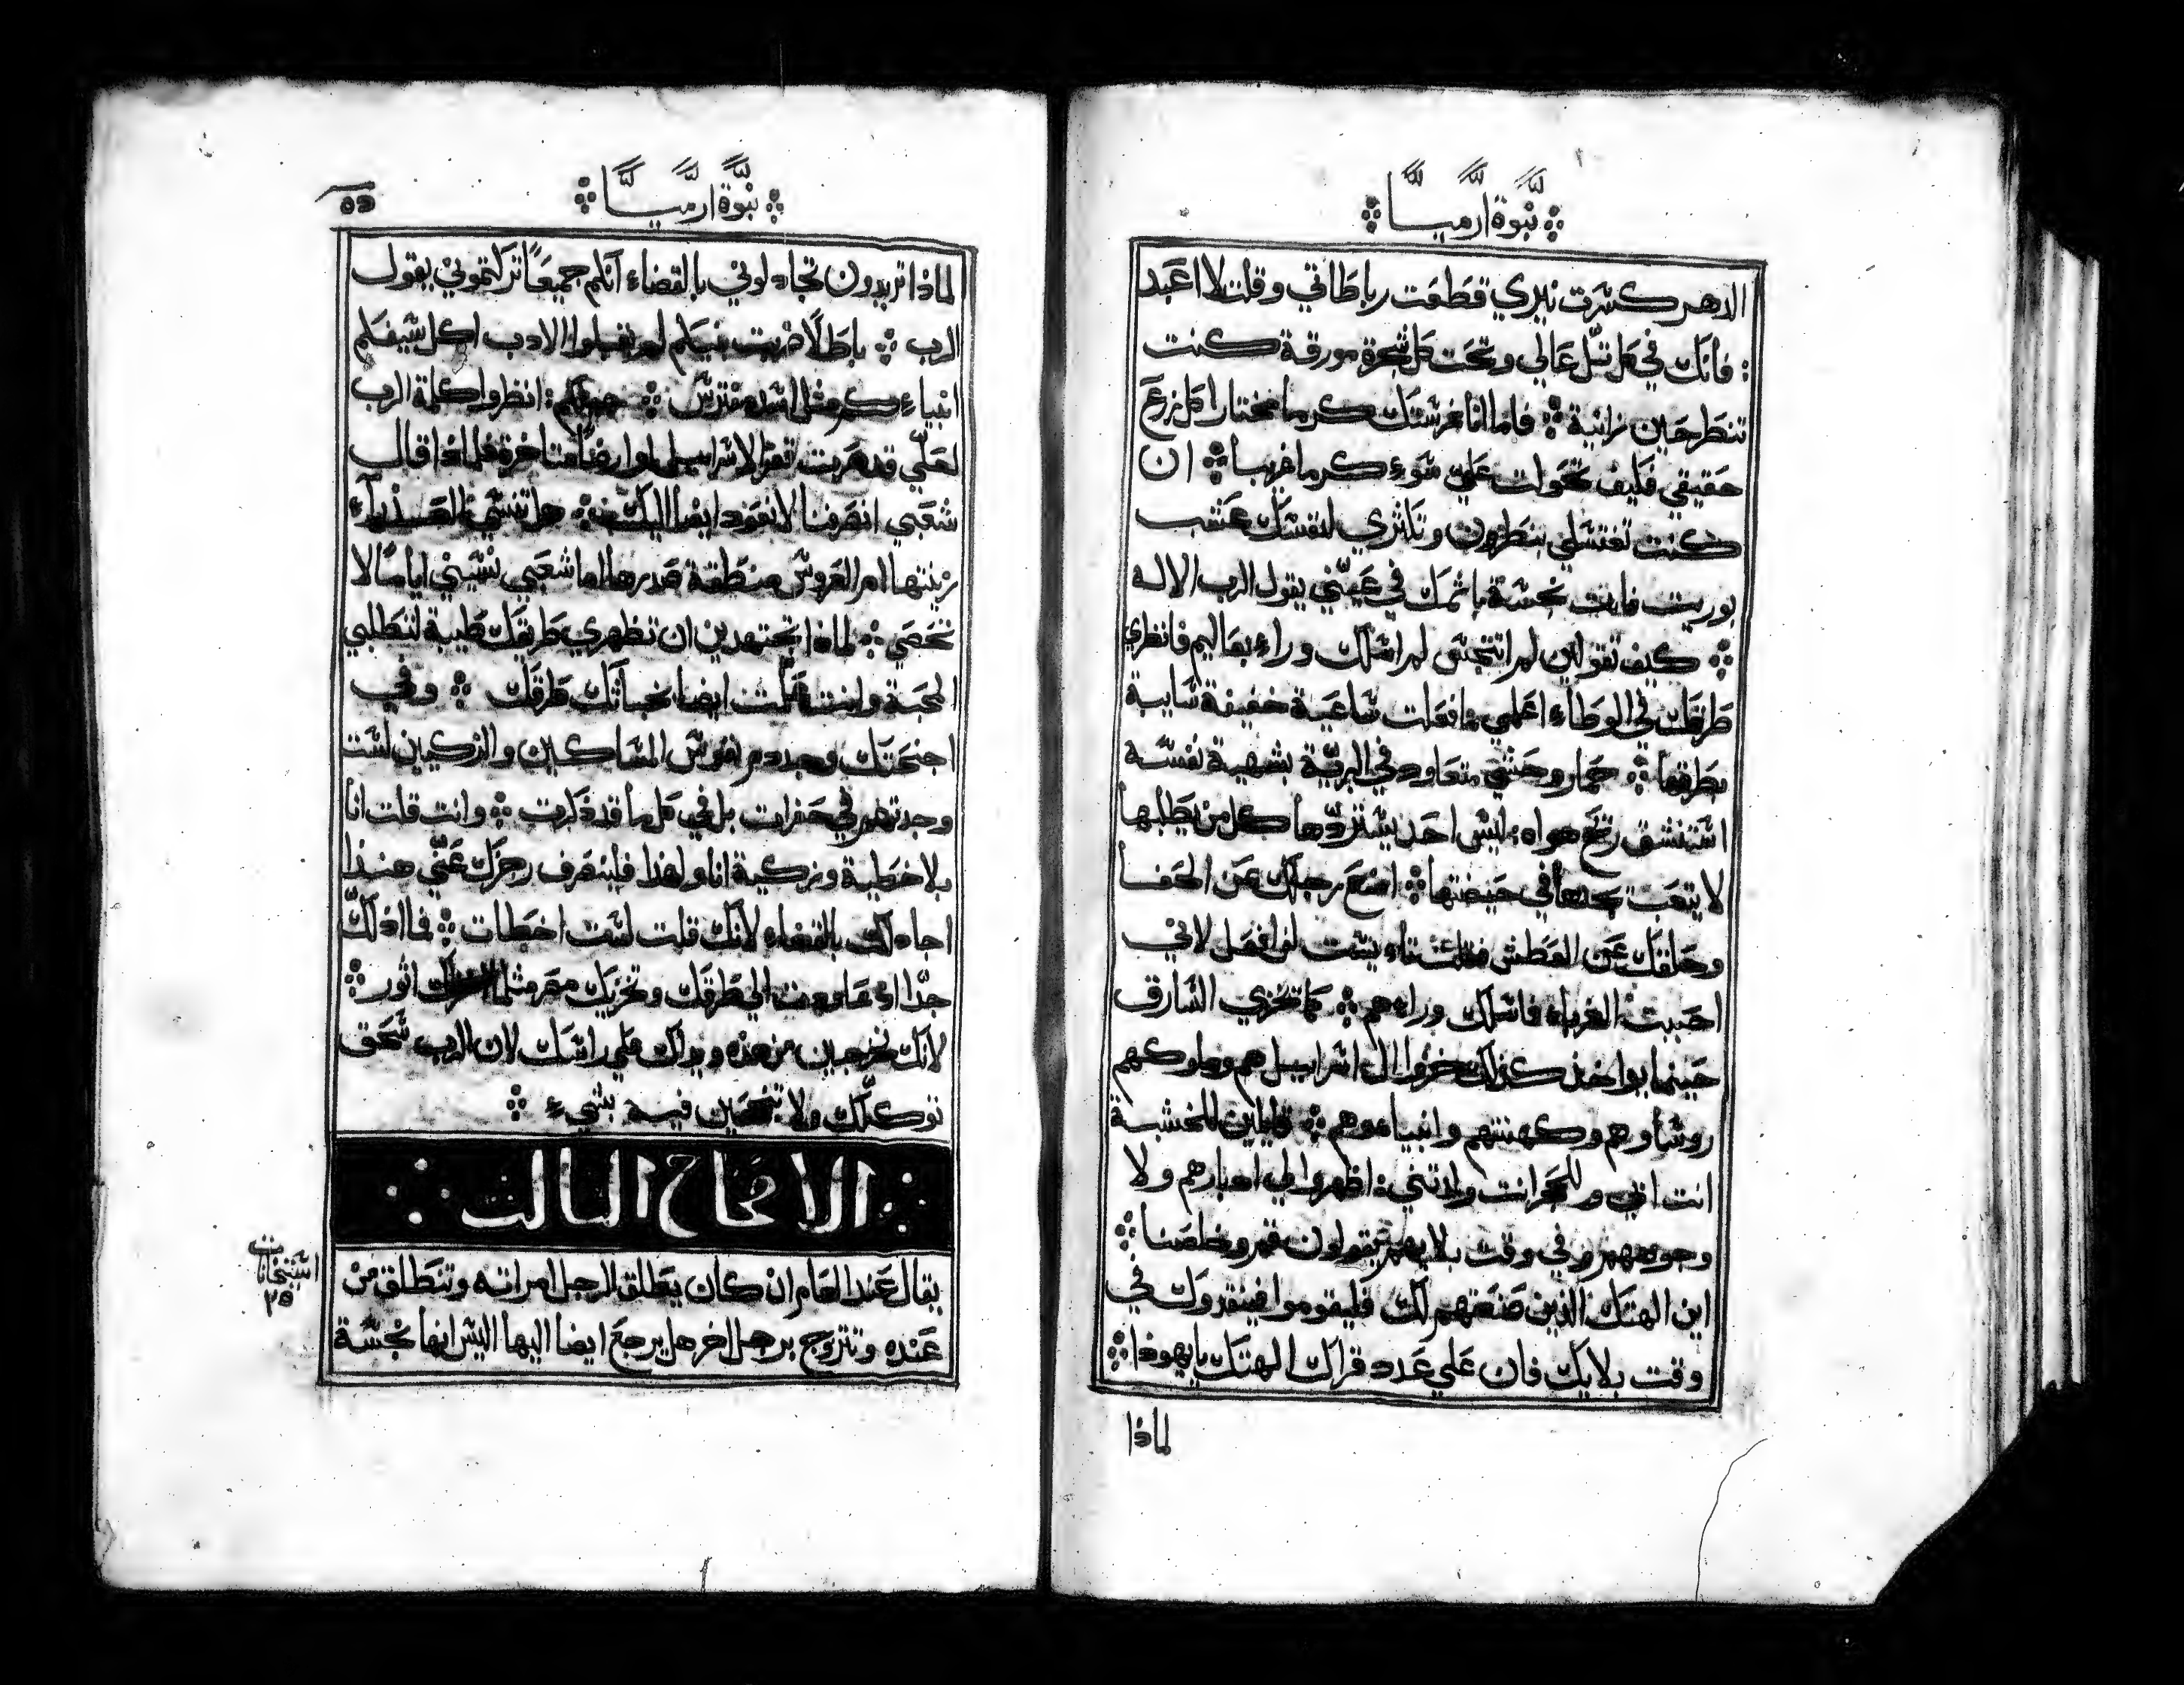 نبوة ارميا
الدهر كسرت نيري قطعت رباطاتي وقلت لا اعبد
: فانك في كل تل عالي وتحت كل شجرة مورقة كنت
تنطرحين زانية ፨ فاما انا غرستك كرما مختارا كل زرع
حقيقي فكيف تحولت علي سوء كرما غريبا ፨ ان
كنت تغتسلي بنطرون وتكثري لنفسك عشب
بوريت فانت نجسة باثمك في عيني يقول الرب الاله
፨ كيف تقولين لم اتنجس لم اسلك وراء بعاليم فانظري
طرقك في الوطاء اعلمي ما فعلت ساعية خفيفة سايبة
بطرقها ፨ حمار وحشي متعاود في البرية بشهية نفسه
استنشق ريح هواه ليس احد يستردها كل من يطلبها
لا يتعب يجدها في حيضتها ፨ امنع رجلك عن الحفا
وحلقك عن العطش فقلت يئست لن افعل لاني
احببت الغرباء فاسلك وراءهم ፨ كما تخزي السارق
حينما يواخذ كذلك خزوا ال اسراييل هم وملوكهم
روساوهم وكهنتهم وانبياءهم ፨ قايلين للخشبة
انت ابي وللحجر انت ولدتني اظهروا لي ادبارهم ولا
وجوههم وفي وقت بلاءهم يقولون قم وخلصنا ፨
اين الهتك الذين صنعتهم لك فليقوموا فينقدوك في
وقت بلايك فان علي عدد قراك الهتك يا يهوذا ፨
لماذا
نبوة ارميا
٥٥
لماذا تريدون تجادلوني بالقضاء انكم جميعًا تركتموني يقول
الرب ፨ باطلًا ضربت بنيكم لم تقبلوا الادب اكل سيفكم
انبياءكم مثل اسد مفترس ፨ انظروا كلمة الرب
لعلي قد صرت قفرًا لاسراييل او ارضًا متاخرة فلماذا قال
شعبي انصرفنا لا نعود ايضا اليك ፨ هل تنسي العذراء
زينتها ام العروس منطقة صدرها اما شعبي نسيني ايامًا لا
تحصي ፨ لماذا تجتهدين ان تظهري طريقك طيبة لتطلبي
المحبة وانت علمت ايضا خباثتك طرقك ፨ وفي
اجنحتك وجد دم نفوس المساكين والزكيين لست
وجدتهم في حفرات بل في كل ما قد ذكرت ፨ وانت قلت انا
بلا خطية وزكية انا ولهذا فلينصرف رجزك عني هنذا
اجادلك بالقضاء لانك قلت لست اخطات ፨ فما اذلك
جدا اذ عاودت الي طرقك وتخزيك مصر مثلما اثور ፨
لانك تخرجين من هذه ويداك علي راسك لان الرب سحق
توكلك ولا تنجحين فيه بشيء ፨
الاصحاح الثالث
استثنايات
٢٥
يقال عند العام ان كان يطلق الرجل امراته وتنطلق من
عنده وتتزوج برجل اخر هل يرجع ايضا اليها اليس انها نجسة